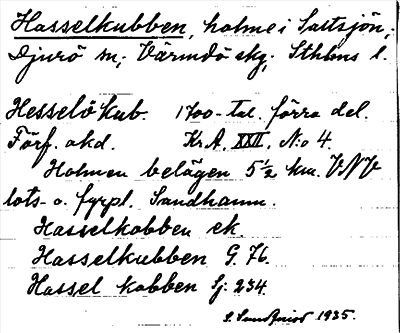 Hasselkubben, holme i Saltsjön;
Djurö sn; Värmdö skg; Sthlms l.
Hesselö Kub. 1700-tal. förra del.
Förf. okd. Kr.A. XXVI, No 4.
Holmen belägen 5 1/2 km. VNV
lots- o. fyrpl. Sandhamn.
Hasselkobben ek.
Hasselkubben G. 76.
Hassel kobben Sj: 234.
1935.